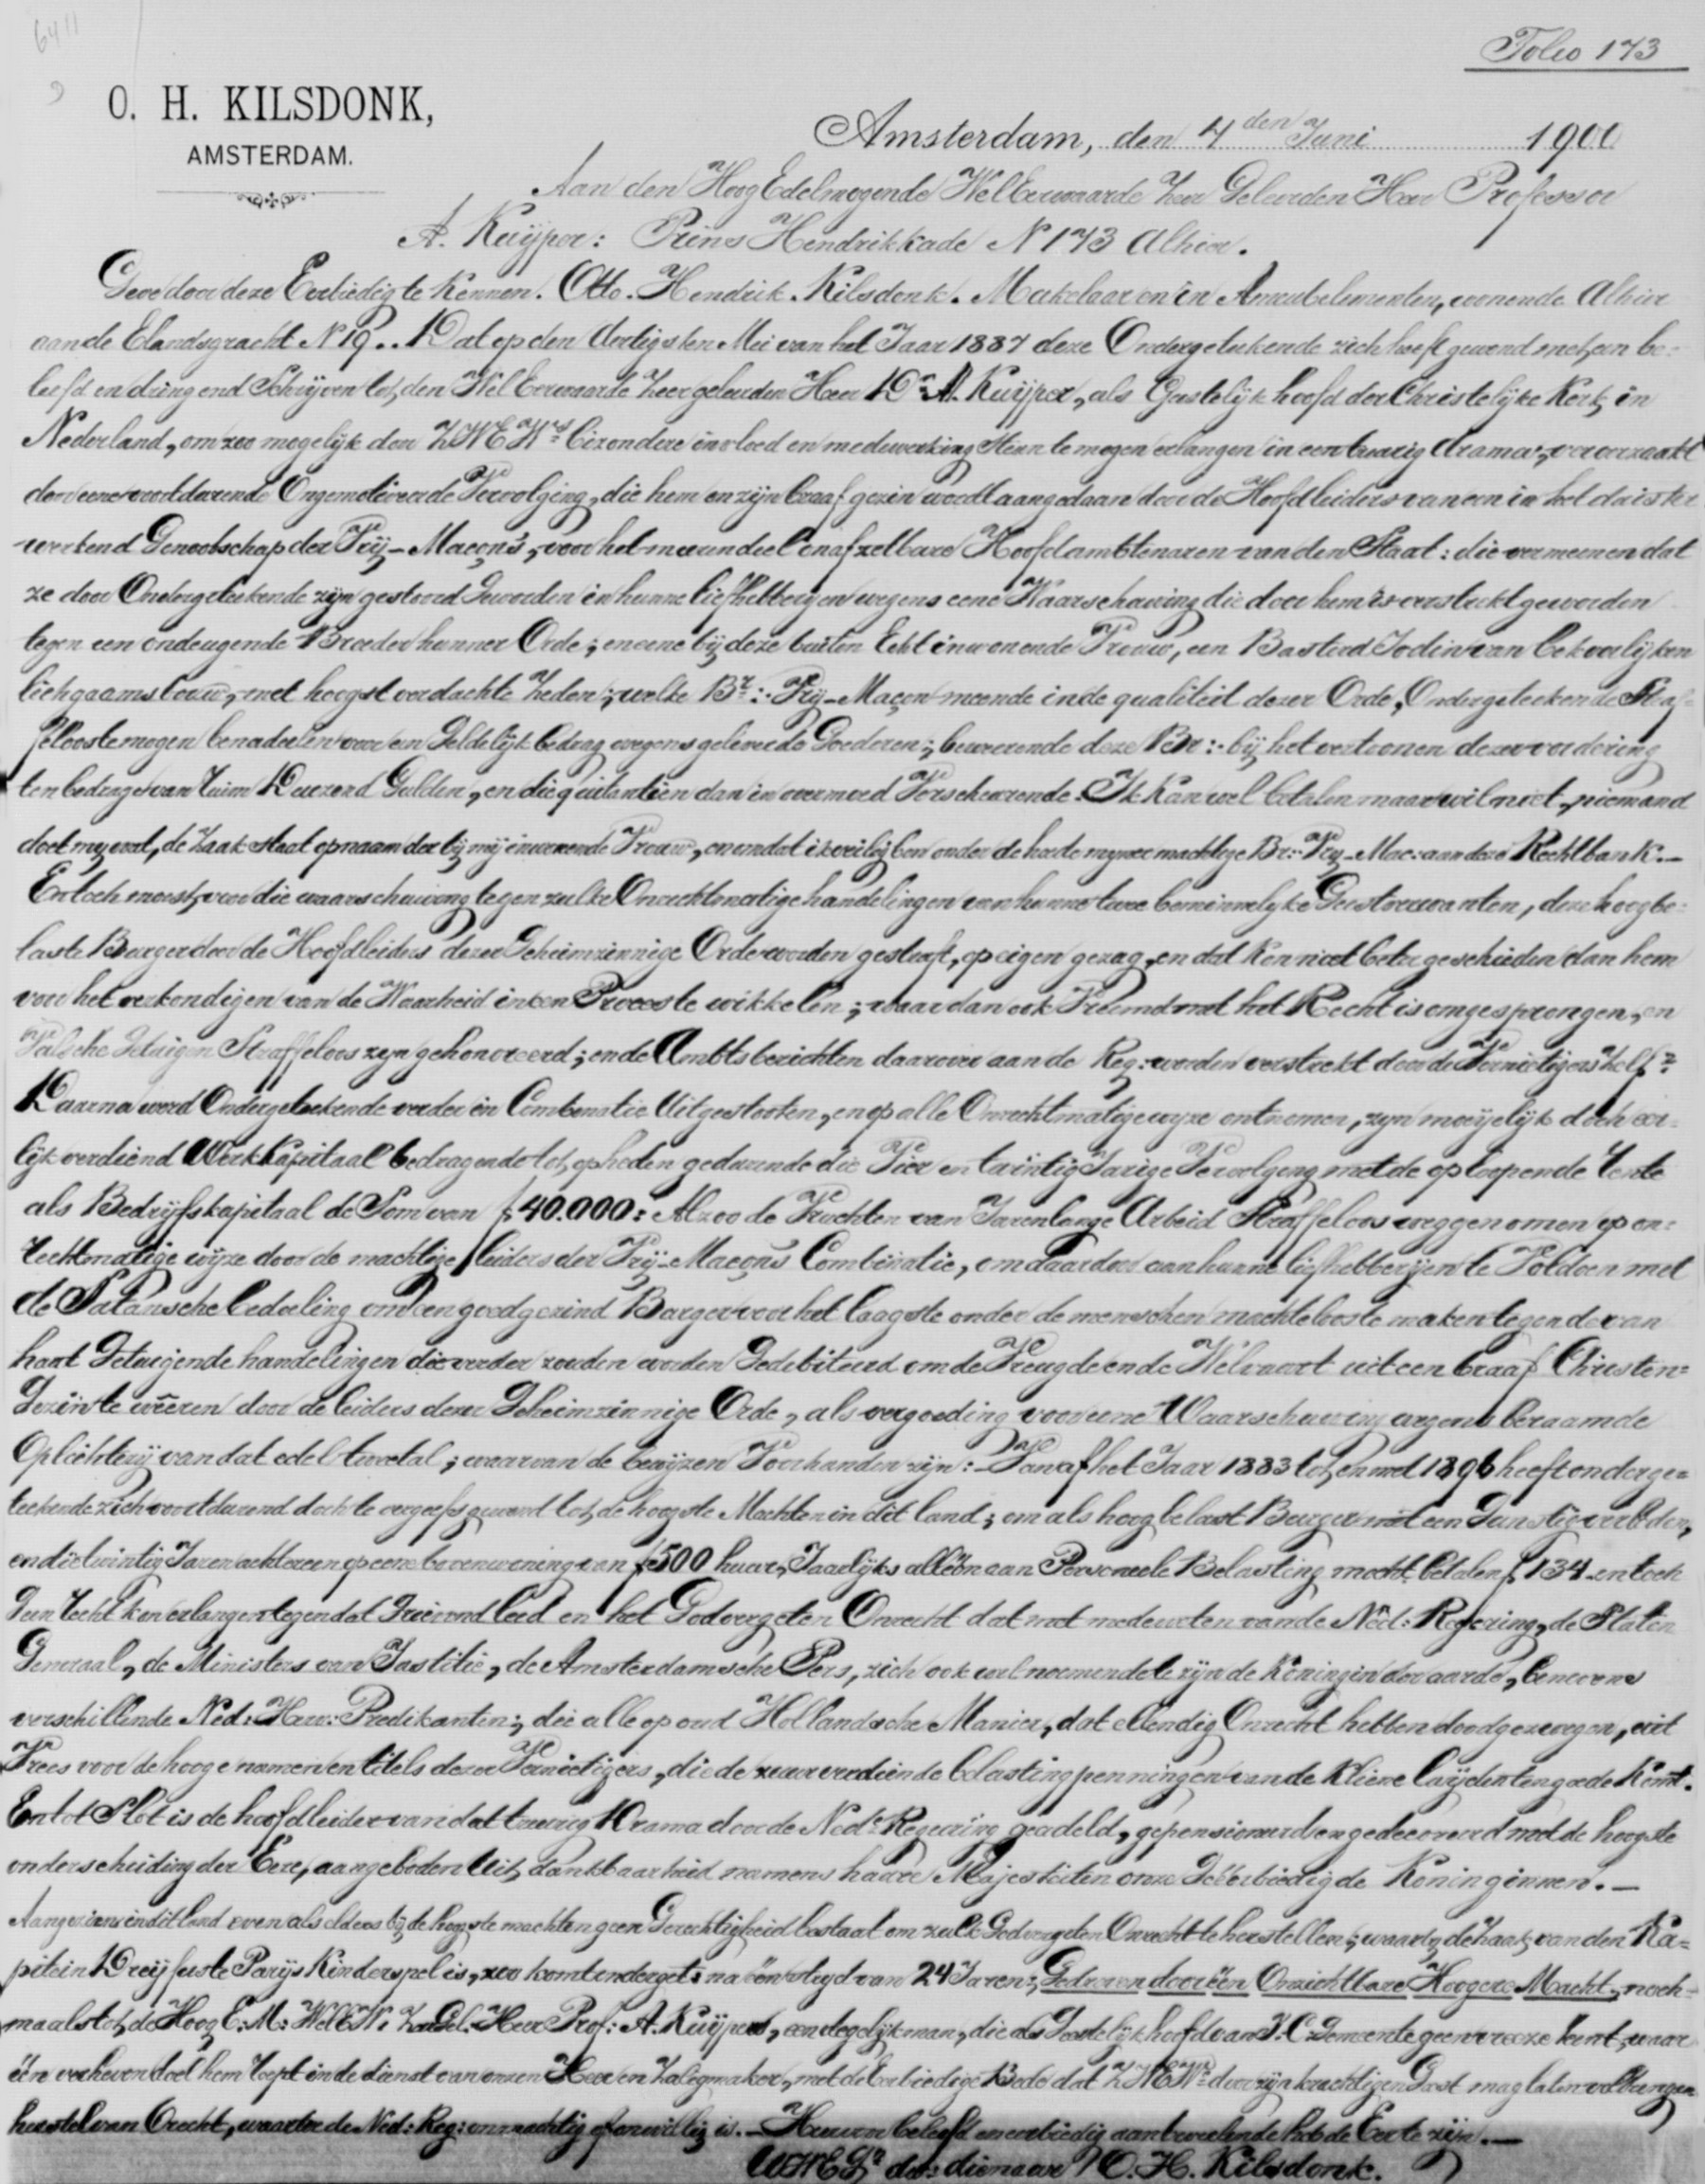 6411
Folio 173
O. H. KILSDONK,
AMSTERDAM.
Amsterdam, den 4 den Juni 1900
Aan den HoogEdelmogende WelEerwaarde Zeer Geleerden Heer Professor
A. Kuijper: Prins Hendrikkade N 173 Alhier.
Geve door deze Eerbiedig te Kennen. Otto. Hendrik. Kilsdonk. Makelaar en in Ameubelementen, wonende Alhier
aan de Elandsgracht N 19.. Dat op den dertigsten Mei van het Jaar 1887 deze Ondergeteekende zich heeft gewend met een be=
leefd en dringend Schrijven tot den WelEerwaarde Zeer geleerden Heer Dr. A. Kuijper, als Geestelijk hoofd der Christelijke Kerk in
Nederland, om zoo mogelijk door ZWEWs bizondere invloed en medewerking Steun te mogen erlangen in een treurig drama, veroorzaakt
door eene voortdurende Ongemotiveerde Vervolging, die hem en zijn braaf gezin wordt aangedaan door de Hoofdleiders van een in het duister
werkend Genootschap der Vrij-Maçons, voor het meerendeel onafzetbare Hoofdambtenaren van den Staat: die vermeenen dat
ze door Ondergeteekende zijn gestoord geworden in hunne liefhebberijen wegens eene Waarschuwing die door hem is verstrekt geworden
tegen een ondeugende Broeder hunner Orde; en eene bij deze buiten Echt inwonende Vrouw, een Basterd Jodin van bekoorlijken
lichgaamsbouw, met hoogst verdachte Zeden; welke Br:. Vrij-Maçon meende in de qualiteit dezer Orde, Ondergeteekende Straf=
feloos te mogen benadeelen voor een Geldelijk bedrag wegens geleverde Goederen; beweerende deze Br:. bij het vertoonen dezer vordering
ten bedrage van ruim Duizend Gulden, en die quitantiën dan in overmoed Verscheurende. Ik Kan wel betalen maar wil niet, niemand
doet mij wat, de Zaak staat op naam der bij mij inwonende Vrouw, en omdat ik veilig ben onder de hoede mijner machtige Br:. Vrij-Mac: aan deze Rechtbank.—
En toch moest voor die waarschuwing tegen zulke Onrechtmatige handelingen van hunne twee beminnelijke Geestverwanten, deze hoogbe=
laste Burger door de Hoofdleiders dezer Geheimzinnige Orde worden gestraft, op eigen gezag, en dat kon niet beter geschieden dan hem
voor het verkondigen van de Waarheid in een Proces te wikkelen; waar dan ook Vreemd met het Recht is omgesprongen, en
Valsche Getuigen Straffeloos zijn gehonoreerd; en de Ambtsberichten daarover aan de Reg: worden verstrekt door de Vernietigers Zelf.
Daarna werd Ondergeteekende verder in Combinatie Uitgestooten, en op alle Onrechtmatige wijze ontnomen, zijn moeijelijk doch eer=
lijk verdiend Werk Kapitaal bedragende tot op heden gedurende die Vier en twintig Jarige Vervolging met de oploopende rente
als Bedrijfskapitaal de Som van ƒ 40.000: Alzoo de Vruchten van Jarenlange Arbeid Straffeloos weggenomen op on=
rechtmatige wijze door de machtige leiders der Vrij-Maçons Combinatie, om daardoor aan hunne liefhebberijen te Voldoen met
de Satansche bedoeling om een goedgezind Burger voor het laagste onder de menschen machteloos te maken tegen de van
haat Getuigende handelingen die verder zouden worden Gedebiteerd om de Vreugde en de Welvaart uit een braaf Christen=
Gezin te weeren door de leiders dezer Geheimzinnige Orde, als vergoeding voor eene Waarschuwing wegens beraamde
Oplichterij van dat edel tweetal; waarvan de bewijzen Voorhanden zijn: Vanaf het Jaar 1883 tot en met 1896 heeft onderge=
teekende zich voortdurend doch te vergeefs gewend tot de hoogste Machten in dit land; om als hoog belast Burger met een Gunstig verleden,
en die twintig Jaren achtereen op eene bovenwoning van ƒ 500 huur, Jaarlijks alleen aan Personeele Belasting mocht betalen ƒ 134 en toch
Geen recht kon erlangen tegen dat Grievend leed en het Godvergeten Onrecht dat met medeweten van de Ned: Regeering, de Staten
Generaal, de Ministers van Justitie, de Amsterdamsche Pers, zich ook wel noemende te zijn de Koningin der aarde, benevens
verschillende Ned: Herv: Predikanten; die alle op oud Hollandsche Manier, dat ellendig Onrecht hebben doodgezwegen, uit
Vrees voor de hooge namen en titels dezer Vernietigers, die de zuur verdiende belastingpenningen van de Kleine luijden ten goede Komt.
En tot Slot is de hoofdleider van dat treurig Drama door de Ned: Regeering geadeld, gepensioneerd en gedecoreerd met de hoogste
onderscheiding der Eere, aangeboden Uit dankbaarheid namens haare Majesteiten onze Geëerbiedigde Koninginnen.—
Aangezien in dit land even als elders bij de hoogste machten geen Gerechtigheid bestaat om zulk Godvergeten Onrecht te herstellen; waarbij de Zaak van den Ka=
pitein Dreijfus te Parijs Kinderspel is, zoo komt ondergets na een strijd van 24 Jaren; Gedreven door een Onzichtbare Hoogere Macht, noch=
maals tot de Hoog E: M: WelEW: Zeer Gel. Heer Prof: A. Kuijper, een degelijk man, die als Geestelijk hoofd van J. C. Gemeente geen vreeze kent, waar
een verheven doel hem roept in de dienst van onzen Heer en Zaligmaker, met de Eerbiedige Bede dat ZWEW door zijn krachtigen Geest mag laten volbrengen
herstel van Onrecht, waartoe de Ned: Reg: onmachtig of onwillig is.— Hiermede beleefd en eerbiedig aanbevelende heb de Eer te zijn.—
UHEG dw: dienaar O. H. Kilsdonk.